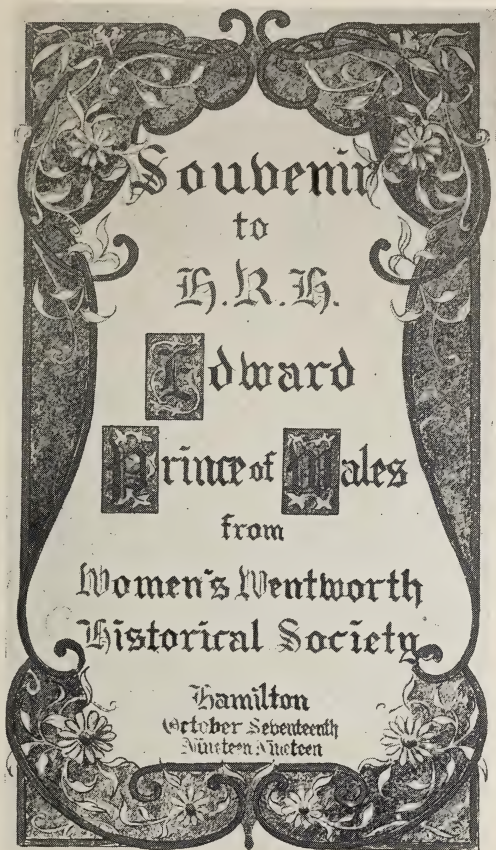 Souvenir
to
H.R.H.
Edward
Prince of Wales
from
Women's Wentworth
Historical Society
Hamilton
October Seventeenth
Nineteen Nineteen